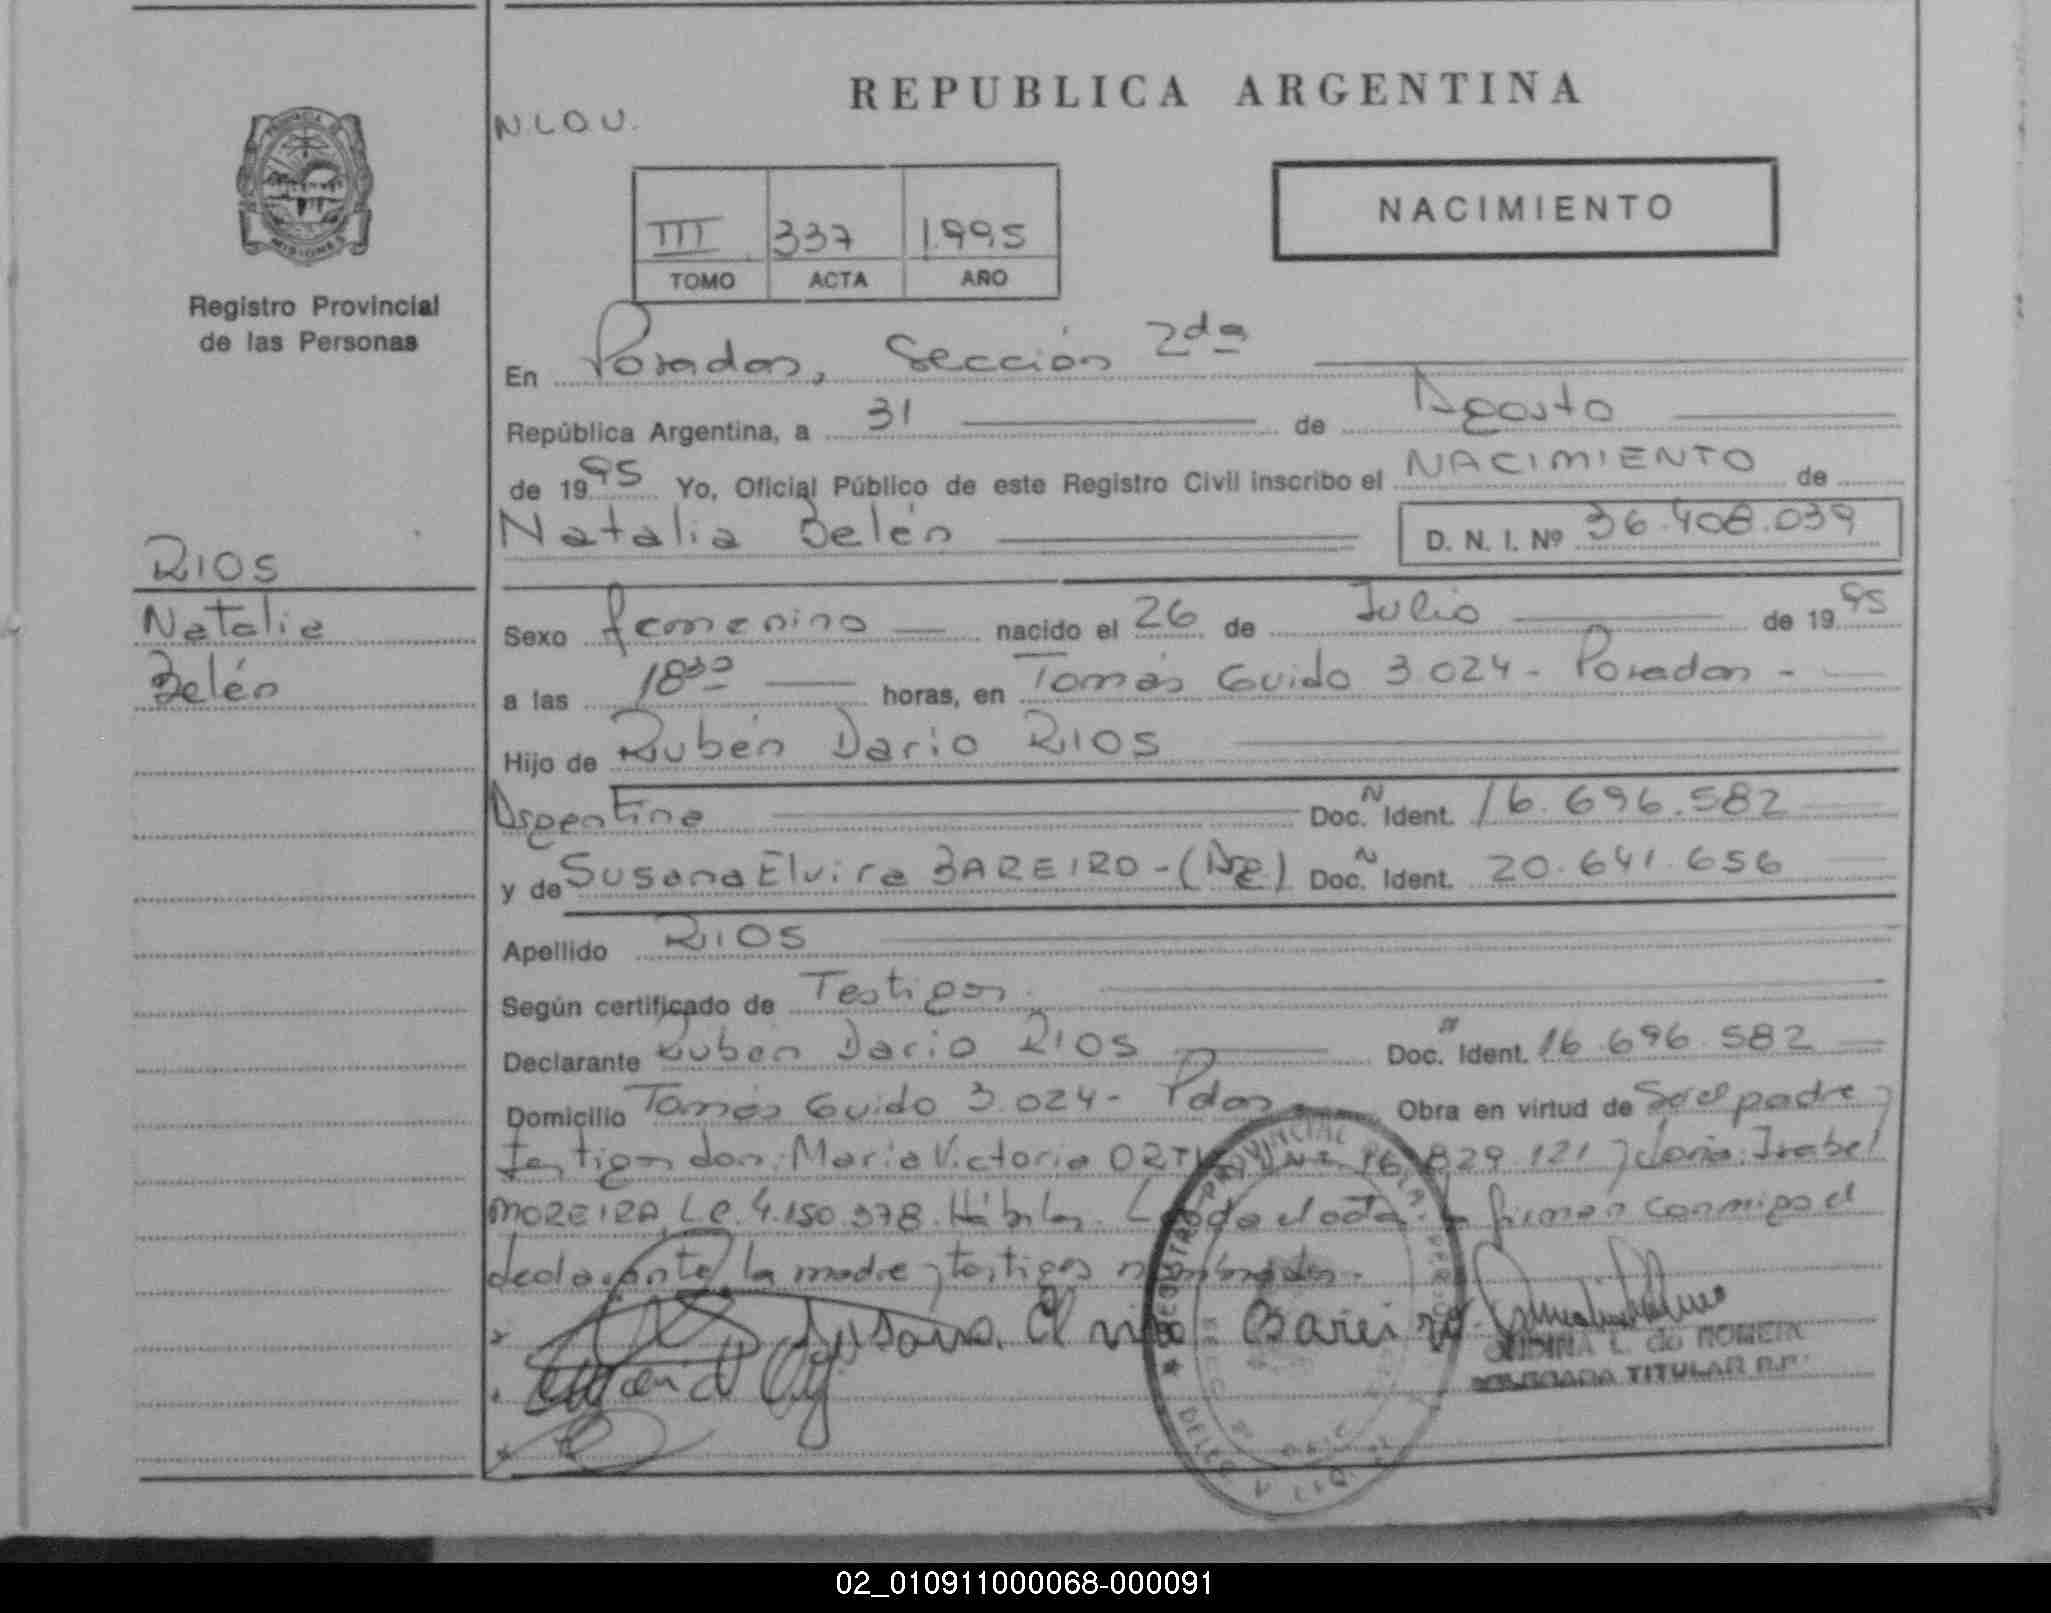 REPUBLICA ARGENTINA
N.L.O.U.
III 337 1.995
TOMO ACTA AÑO
NACIMIENTO
MISIONES
Registro Provincial
de las Personas
En Posadas, Sección 2da
República Argentina, a 31 de Agosto
de 1995 Yo, Oficial Público de este Registro Civil inscribo el NACIMIENTO de
Natalia Belén D. N. I. Nº 36.408.039
RIOS
Natalia
Belén
Sexo femenino nacido el 26 de Julio de 1995
a las 18³⁰ horas, en Tomás Guido 3.024 - Posadas -
Hijo de Rubén Dario RIOS
Argentina Doc. N Ident. 16.696.582
y de Susana Elvira BAREIRO - (Arg.) Doc. N Ident. 20.641.656
Apellido RIOS
Según certificado de Testigos.
Declarante Rubén Dario RIOS Doc. N Ident. 16.696.582
Domicilio Tomás Guido 3.024 - Pdas. Obra en virtud de Ser el padre y
testigos don: Maria Victoria 16.829.121 y doña: Isabel
MOREIRA, L.C. 4.150.378. Hábiles. Leída el acta, la firman conmigo el
declarante, la madre y testigos nombrados.
Susana Elvira Bareiro
REGISTRO PROVINCIAL DE LAS PERSONAS
L. de ROMERO
DELEGADA TITULAR R.P.
02_010911000068-000091